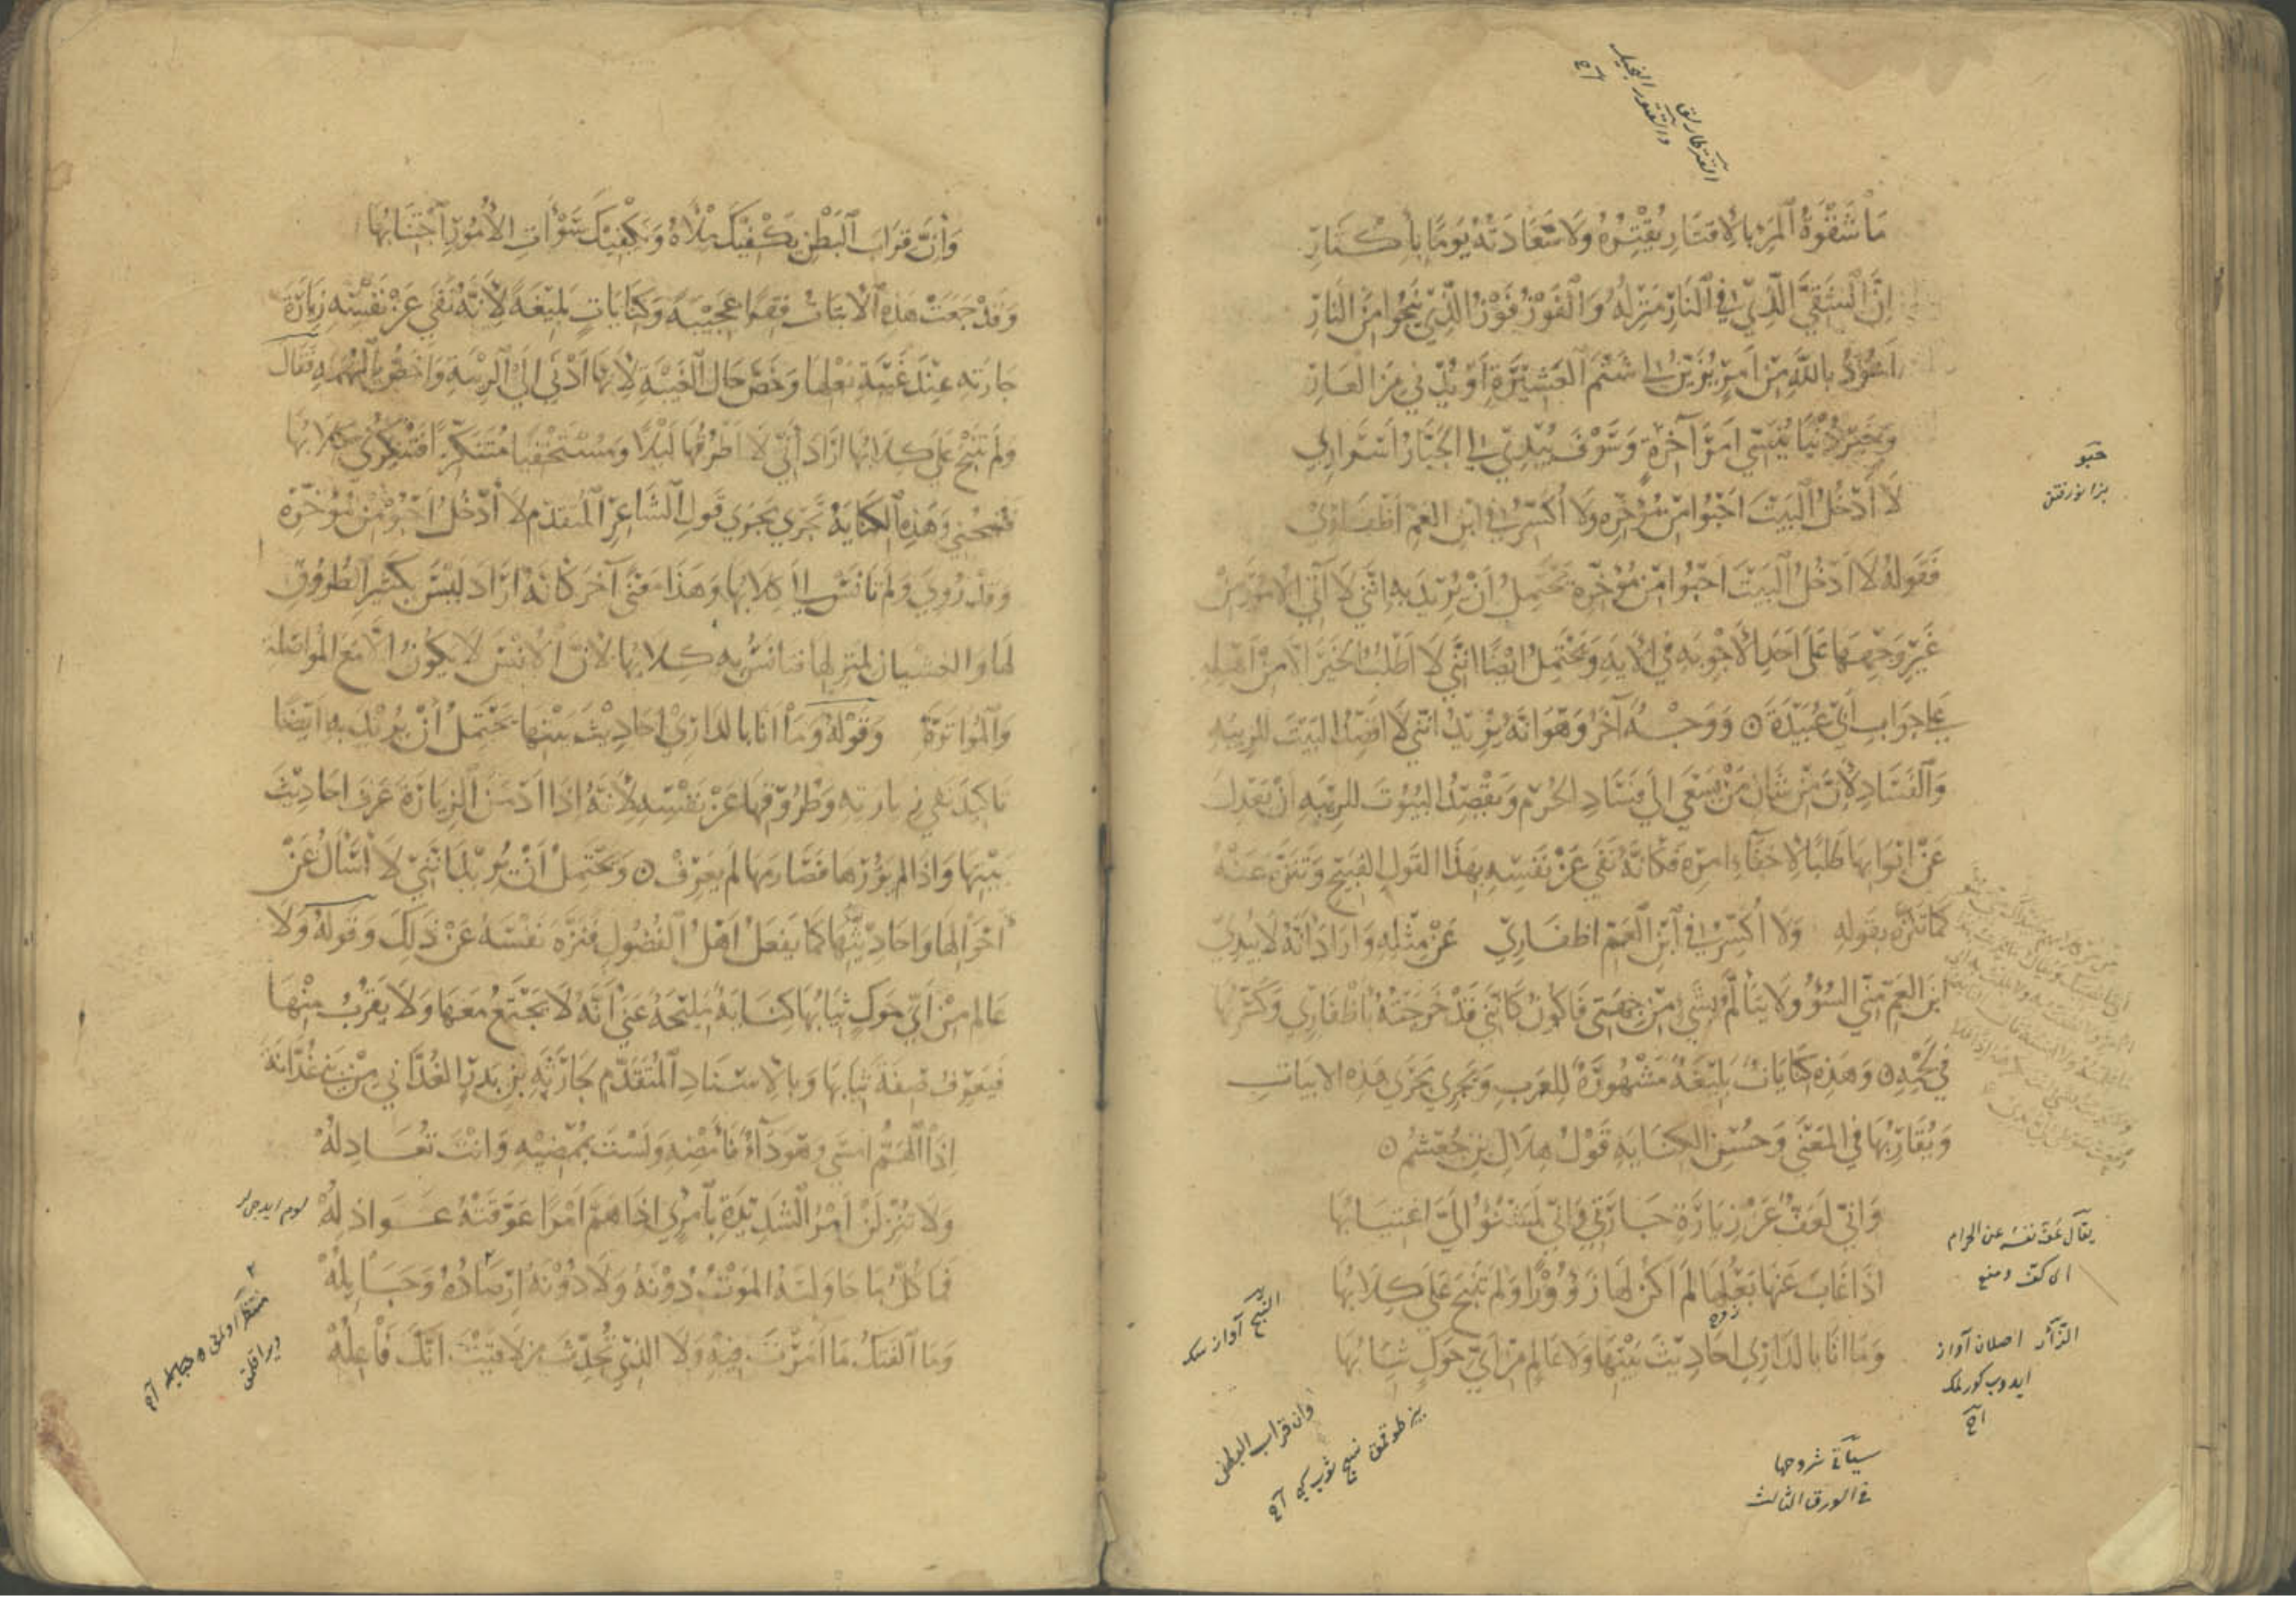 مَا شَقْوَةُ الْمَرْءِ بِالْاِقْتَارِ يُقْتِرُهُ وَلَا سَعَادَتُهُ يَوْمًا بِإِكْثَارِ
اِنَّ الشَّقِيَّ الَّذِي فِي النَّارِ مَنْزِلُهُ وَالْفَوْزُ فَوْزُ الَّذِي يَنْجُوا مِنَ النَّارِ
اَعُوذُ بِاللهِ مِنْ اَمْرٍ يُزَيِّنُ لِي شَتْمَ الْعَشِيْرَةِ اَوْ يُدْنِي مِنَ الْعَارِ
وَخَيْرِ دُنْيَا يُنَسِّي اَمْرَ آخِرَةٍ وَسَوْفَ يُبْدِي لِي الْجَبَّارُ اَسْرَارِي
لَا اَدْخُلُ الْبَيْتَ اَحْبُوا مِنْ مُؤَخَّرِهِ وَلَا اُكَسِّرُ فِي ابْنِ الْعَمِّ اَظْفَارِي
فَقَولُهُ لَا اَدْخُلُ الْبَيْتَ اَحْبُوا مِنْ مُؤَخَّرِهِ تَحْتَمِلُ اَنْ يُرِيْدَ بِهِ اِنَّنِي لَا آتِي الْاُمُورَ مِنْ
غَيْرِ وَجْهِهَا عَلَى اَحَدِ الْاَجْوِبَةِ فِي الْآيَةِ وَيَحْتَمِلُ اَيْضًا اِنَّنِي لَا اَطْلُبُ الْخَيْرَ اِلَّا مِنْ اَهْلِهِ
عَلَى جَوَابِ اَبِي عُبَيْدَةَ ٥ وَوَجْهٌ آخَرُ وَهُوَ اَنَّهُ يُرِيْدُ اِنَّنِي لَا اَقْصِدُ الْبَيْتَ لِلرِّيْبَةِ
وَالْفَسَادِ لِأَنَّ مِنْ شَأْنِ مَنْ يَسْعَى اِلَى فَسَادِ الْحُرَمِ وَيَقْصِدُ الْبُيُوتَ لِلرِّيْبَةِ اَنْ يَعْدِلَ
عَنْ اَبْوَابِهَا طَلَبًا لِاِخْفَاءِ اَمْرِهِ فَكَأَنَّهُ نَفَى عَنْ نَفْسِهِ بِهَذَا الْقَولِ الْقَبِيْحَ وَتَنَزَّهَ عَنْهُ
كَمَا تَنَزَّهَ بِقَولِهِ وَلَا اُكَسِّرُ فِي ابْنِ الْعَمِّ اَظْفَارِي عَنْ مِثْلِهِ وَاَرَادَ اَنَّهُ لَا يَبْدِي
ابْنَ الْعَمِّ مِنِّي السُّوْءُ وَلَا يَتَأَلَّمُ بِشَيْءٍ مِنْ جِهَتِي فَاَكُونُ كَاَنَّنِي قَدْ جَرَحْتُهُ بِاَظْفَارِي وَكَسَرْتُهَا
فِي لَحْمِهِ ٥ وَهَذِهِ كِنَايَاتٌ بَلِيْغَةٌ مَشْهُورَةٌ لِلْعَرَبِ وَيَجْرِي مَجْرَى هَذِهِ الْاَبْيَاتِ
وَيُقَارِبُهَا فِي الْمَعْنَى وَحُسْنِ الْكِنَايَةِ قَوْلُ هِلَالِ بْنِ خُثْعُمٍ ٥
وَاِنِّي لَعَفٌّ عَنْ زِيَارَةِ جَارَتِي وَاِنِّي لَمَشْنُوءٌ اِلَيَّ اغْتِيَابُهَا
اِذَا غَابَ عَنْهَا بَعْلُهَا لَمْ اَكُنْ لَهَا زَؤُوْرًا وَلَمْ تَنْبَحْ عَلَيَّ كِلَابُهَا
وَمَا اَنَا بِالدَّارِي اَحَادِيْثَ بَيْتِهَا وَلَا عَالِمٍ مِنْ اَيِّ حَوْكٍ ثِيَابُهَا
حبو
يقال عفّ نفسه عن الحرام
اى كفّ ومنع
الزأر اصلان آواز
ايدوب كورلمك
اه
النبح آواز سك
وان قراب البطن
سيأتى شروحها
فى الورق الثالث
وَاِنَّ قِرَابَ الْبَطْنِ يَكْفِيْكَ مِلْأُهُ وَيَكْفِيْكَ سَوْآتِ الْاُمُورِ اجْتِنَابُهَا
وَقَدْ جَمَعَتْ هَذِهِ الْاَبْيَاتُ فِقَرًا عَجِيْبَةً وَكِنَايَاتٍ بَلِيْغَةً لِأَنَّهُ نَفَى عَنْ نَفْسِهِ زِيَارَةَ
جَارَتِهِ عِنْدَ غَيْبَةِ بَعْلِهَا وَخَصَّ حَالَ الْغَيْبَةِ لِأَنَّهَا اَدْنَى اِلَى الرِّيْبَةِ وَاَخَصُّ بِالتُّهْمَةِ فَقَالَ
وَلَمْ تَنْبَحْ عَلَيَّ كِلَابُهَا اَرَادَ اَنِّي لَا اَطْرُقُهَا لَيْلًا وَمُسْتَخْفِيًا مُتَنَكِّرًا فَتُنْكِرُنِي كِلَابُهَا
فَتَنْبَحُنِي وَهَذِهِ الْكِنَايَةُ تَجْرِي مَجْرَى قَوْلِ الشَّاعِرِ الْمُتَقَدِّمِ لَا اَدْخُلُ اَحْبُو مِنْ مُؤَخَّرِهِ
وَقَدْ رُوِيَ وَلَمْ تَأْنَسْ اِلَيَّ كِلَابُهَا وَهَذَا مَعْنًى آخَرُ كَأَنَّهُ اَرَادَ لَيْسَ بِكَثِيْرِ الطُّرُوْقِ
لَهَا وَالْغِشْيَانِ لِمَنْزِلِهَا فَتَأْنَسُ بِهِ كِلَابُهَا لِاَنَّ الْاُنْسَ لَا يَكُونُ اِلَّا مَعَ الْمُوَاصَلَةِ
وَالْمُوَاتَرَةِ وَقَوْلُهُ وَمَا اَنَا بِالدَّارِي اَحَادِيْثَ بَيْتِهَا يَحْتَمِلُ اَنْ يُرِيْدَ بِهِ اَيْضًا
تَاكِيْدَ نَفْيِ زِيَارَتِهِ وَطُرُوْقِهَا عَنْ نَفْسِهِ لِأَنَّهُ اِذَا اَدْمَنَ الزِّيَارَةَ عَرَفَ اَحَادِيْثَ
بَيْتِهَا وَاِذَا لَمْ يَزُرْهَا وَصَارَمَهَا لَمْ يَعْرِفْ ٥ وَيَحْتَمِلُ اَنْ يُرِيْدَ اَنَّنِي لَا اَسْأَلُ عَنْ
اَحْوَالِهَا وَاَحَادِيْثِهَا كَمَا يَفْعَلُ اَهْلُ الْفُضُولِ فَنَزَّهَ نَفْسَهُ عَنْ ذَلِكَ وَقَوْلُهُ وَلَا
عَالِمٍ مِنْ اَيِّ حَوْكٍ ثِيَابُهَا كِنَايَةٌ مَلِيْحَةٌ عَنْ اَنَّهُ لَا يَجْتَمِعُ مَعَهَا وَلَا يَقْرُبُ مِنْهَا
فَيَعْرِفُ صِفَةَ ثِيَابِهَا وَبِالْاِسْنَادِ الْمُتَقَدِّمِ لِحَارِثَةَ بْنِ بَدْرٍ الْغُدَانِي مِنْ بَنِي غُدَانَةَ
اِذَا الْهَمُّ اَمْسَى وَهُوَ دَآءٌ فَأَمْضِهِ وَلَسْتَ بِمُمْضِيْهِ وَاَنْتَ تُعَادِلُهْ
وَلَا تُنْزِلَنْ اَمْرَ الشَّدِيْدَةِ بِامْرِئٍ اِذَا هَمَّ اَمْرًا عَوَّقَتْهُ عَوَاذِلُهْ
فَمَا كُلُّ مَا حَاوَلْتَهُ الْمَوْتُ دُوْنَهُ وَلَا دُوْنَهُ اَرْصَادُهُ وَحَبَايِلُهْ
وَمَا الْفَتْكُ مَا اَمَّرْتَ فِيْهِ وَلَا الَّذِي تُحَدِّثُ مَنْ لَاقَيْتَ اَنَّكَ فَاعِلُهْ